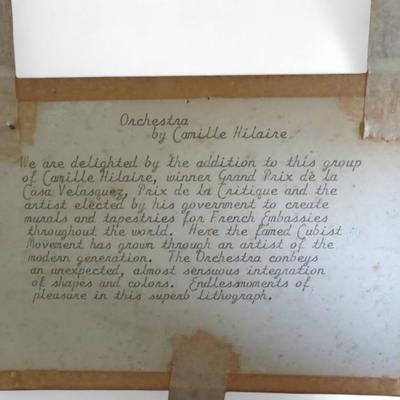 Orchestra
by Camille Hilaire
We are delighted by the addition to this group
of Camille Hilaire, winner Grand Prix de la
Casa Velasquez, Prix de la Critique and the
artist elected by his government to create
murals and tapestries for French Embassies
throughout the world. Here the famed Cubist
Movement has grown through an artist of the
modern generation. The Orchestra conveys
an unexpected, almost sensuous integration
of shapes and colors. Endlessmoments of
pleasure in this superb lithograph.